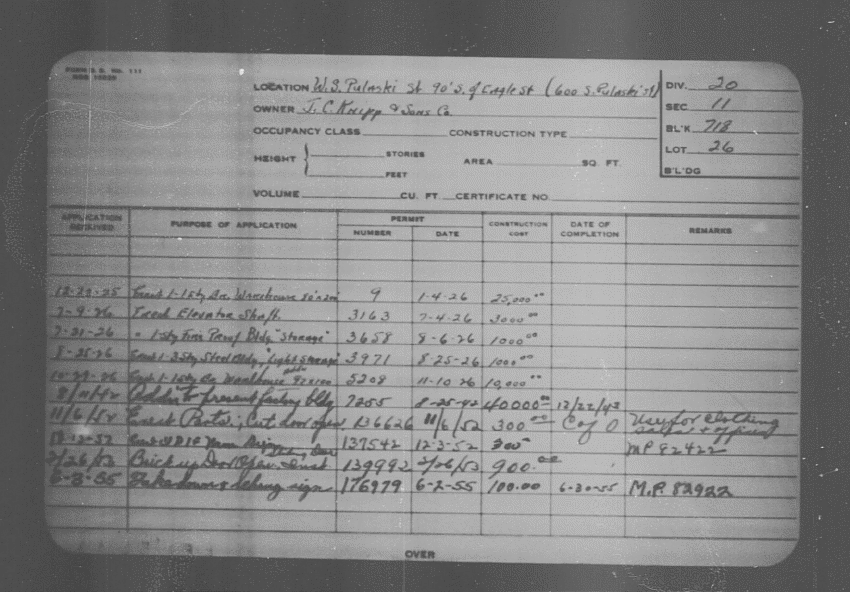 FORM S. D. No. 111
LOCATION W.S. Pulaski St 90' S. of Eagle St (600 S. Pulaski St)
DIV. 20
OWNER J. C. Knipp & Sons Co.
SEC. 11
OCCUPANCY CLASS CONSTRUCTION TYPE
BL'K 718
HEIGHT { STORIES AREA SQ. FT.
LOT 26
FEET
B'L'DG
VOLUME CU. FT. CERTIFICATE NO.
APPLICATION RECEIVED PURPOSE OF APPLICATION PERMIT NUMBER DATE CONSTRUCTION COST DATE OF COMPLETION REMARKS
12-29-25 Erect 1-1 Sty Warehouse 9 1-4-26 25,000.00
7-9-26 Erect Elevator Shaft 3163 7-4-26 3000.00
7-31-26 " 1-Sty Fire Proof Bldg. "Storage" 3658 8-6-26 1000.00
8-25-26 Erect 1-3 Sty Steel Bldg, "Light Storage" 3971 8-25-26 1000.00
10-29-26 1-1 Sty Warehouse 5208 11-10-26 10,000.00
8/11/42 Addn to present factory bldg 7255 8-25-42 40000 12/22/42
11/6/52 Erect Parts; Cut door open 136626 11/6/52 300.00 C of O Use for Clothing
137542 12-3-52 MP 82422
2/26/53 Brick up Door Open 139992 2/26/53 900.00
6-3-55 Take down & rehang sign 176979 6-2-55 100.00 6-30-55 M.P. 82922
OVER